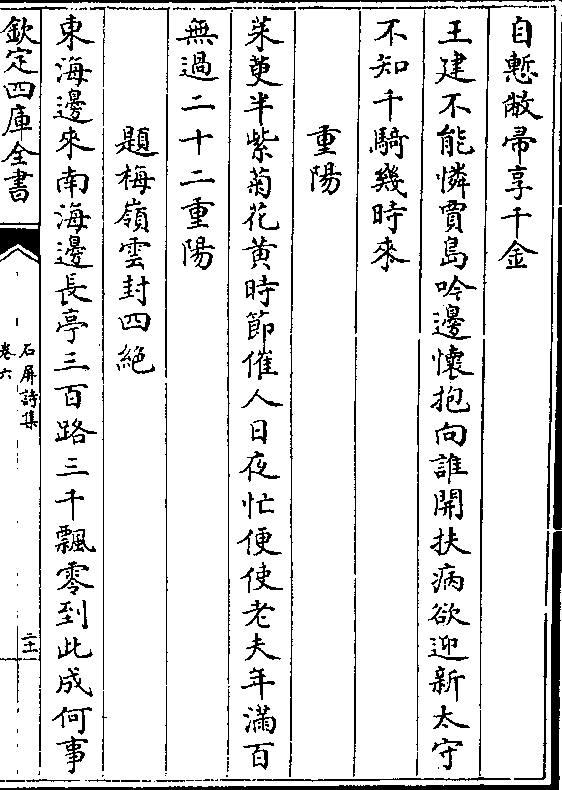 自慙敝帚享千金
王建不能憐賈島吟邊懷抱向誰開扶病欲迎新太守
不知千騎幾時來
重陽
茱萸半紫菊花黄時節催人日夜忙便使老夫年滿百
無過二十二重陽
題梅嶺雲封四絶
東海邊來南海邊長亭三百路三千飄零到此成何事
欽定四庫全書
石屏詩集
卷六
二十一